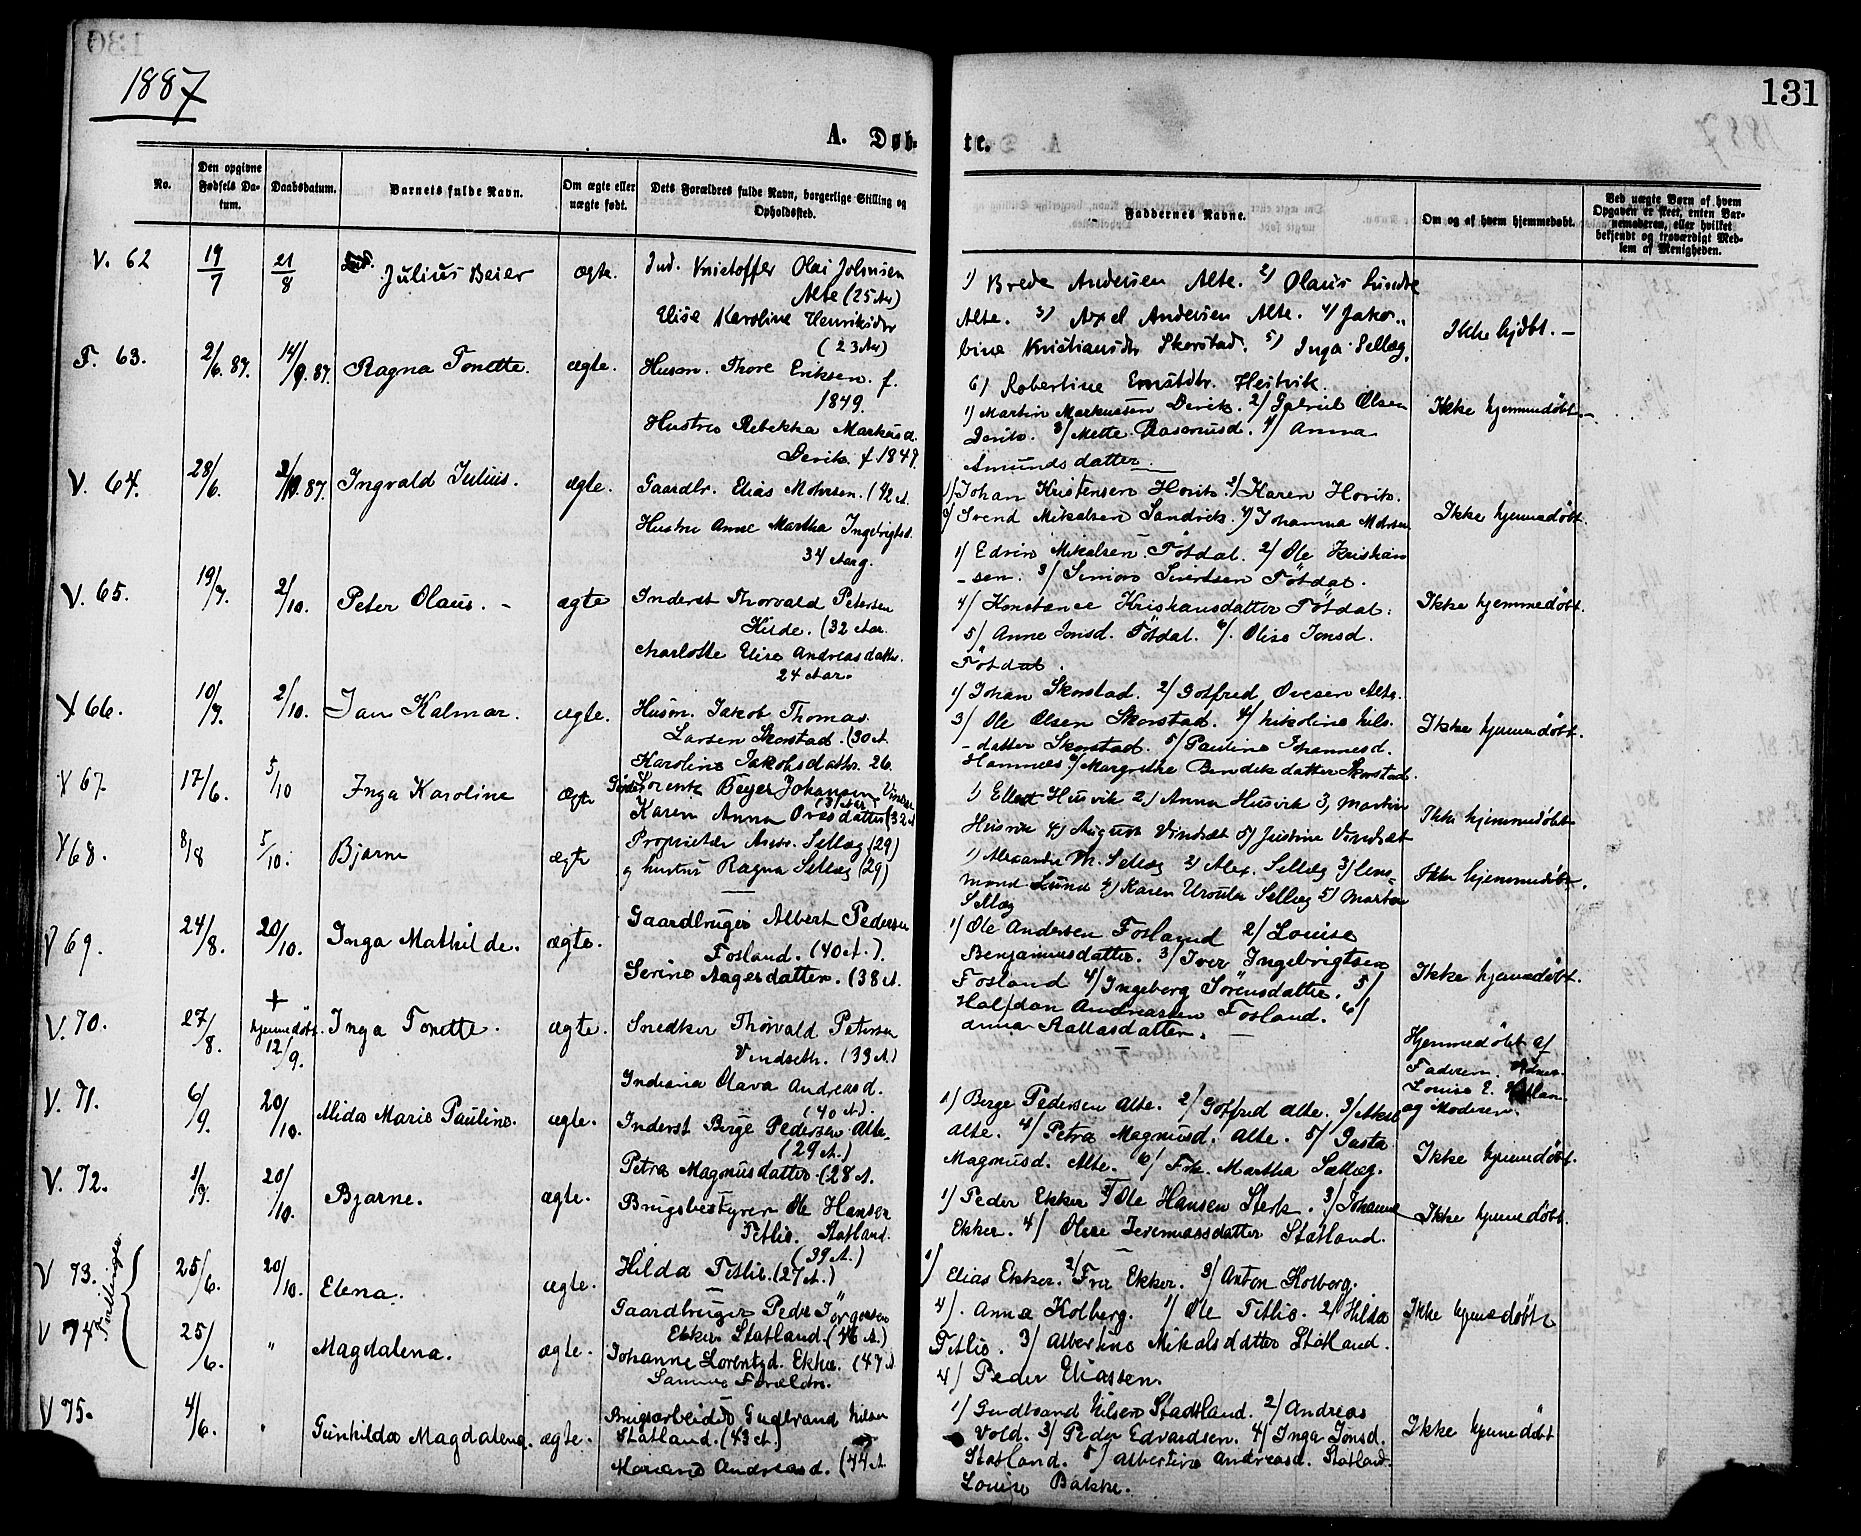 1887
131
A. Døb- te.
No.
Den opgivne Fødsels Da-tum.
Daabsdatum.
Barnets fulde Navn.
Om ægte eller uægte født.
Dets Forældres fulde Navn, borgerlige Stilling og Opholdssted.
Faddernes Navne.
Om og af hvem hjemmedøbt.
Ved uægte Børn af hvem Opgaven er skeet, enten Bar-nemoderen, eller hvilket bekjendt og troværdigt Med-lem af Menigheden.
V. 62 19/7 21/8 Julius Beier ægte.
Ind. Kristoffer Olai Johnsen
Alte (25 Aar)
Elise Karoline Henriksdtr
(23 Aar)
1) Brede Andersen Alte. 2) Olaus
Alte. 3) Axel Andersen Alte. 4) Jako-
bine Kristiansdtr Skorstad. 5) Inga Sellæg.
6) Robertine Ernstdtr. Hestvik.
Ikke hjdbt. —
F. 63. 2/6. 87. 14/9. 87. Ragna Tonette. ægte.
Husm. Thore Eriksen. f.
1849.
Hustru Rebekka Markusd.
Dervik. f 1849.
1) Martin Markussen Dervik. 2/ Gabriel Olsen
Dervik. 3/ Mette Rasmusd. 4/ Anna
Amundsdatter
Ikke hjemmedøbt. —
V. 64. 28/6. 87. Ingvald Julius. ægte.
Gaardbr. Elias Mohrsen. (42 A.
Hustru Anne Martha Ingebrigtsd.
34 Aarg.
1) Johan Kristensen Hovik. 2/ Karen Hovik.
3/ Svend Mikalsen Sandvik. 4/ Johanna Mohrsen
Ikke hjemmedøbt.
V. 65. 19/7. 2/10. Peter Olaus. - ægte
Inderst Thorvald Petersen
Hilde. (32 Aar.
Charlotte Elise Andreasdatter.
24 Aar.
1/ Edvin Mikalsen Fötdal. 2/ Ole Kristian
-sen. 3/ Simon Sivertsen Fötdal.
4/ Konstance Kristiansdatter Fötdal.
5/ Anne Jonsd. Fötdal. 6/. Olise Jonsd.
Fötdal.
Ikke hjemmedöbt.
V 66. 10/7. 2/10. Jan Kalmar. ægte.
Husm. Jakob Thomas
Larsen Skorstad. (30 A.
Karoline Jakobsdatter. 26.
1/ Johan Skorstad. 2/ Gotfred Ovesen Alte.
3/ Ole Olsen Skorstad. 4/ Nikoline Nils-
-datter Skorstad. 5/ Pauline Johannesd.
Hamnes 6/ Margrethe Bendiksdatter Skorstad.
Ikke hjemmedøbt.
V 67. 17/6. 5/10 Inga Karoline Ægte
Lorents Beyer Johansen
(31 Aar)
Karen Anna Ovesdatter (32 A
1) Ellert Husvik 2) Anna Husvik 3, Martin
Husvik 4) August Vindsæt 5) Justine Vindsæt
Ikke hjemmedøbt
V 68. 8/8 5/10. Bjarne ægte
Proprietær Sellæg (29)
og hustru Ragna Sellæg (29)
1) Alexander Th. Sellæg 2) Alex. Sellæg 3) lens-
mand Lund 4) Karen Ursula Sellæg 5) Marten
Sellæg
Ikke hjemmedøbt.
V 69. 24/8. 20/10. Inga Mathilde. ægte.
Gaardbruger Albert Pedersen
Fosland. (40 A.).
Serine Aagesdatter. (38 A.
1) Ole Andersen Fosland 2/ Louise
Benjaminsdatter. 3/ Iver Ingebrigtsen
Fosland 4/ Ingeborg Sörensdatter. 5/
Halfdan Andreassen Fosland. 6/
Anna Rallasdatter.
Ikke hjemmedøbt.
V. 70. 27/8. + hjemmedøbt. 12/9. Inga Tonette. ægte.
Snedker Thorvald Petersen
Vindseth. (33 A.)
Indiana Olava Andreasd.
(40 A).
Hjemmedøbt af
Faderen.
Louise E.
og Moderen.
V. 71. 6/9. 20/10. Alida Marie Pauline. ægte.
Inderst Berge Pedersen Alte.
(29 A.)
Petra Magnusdatter. (28 A.
1/ Berge Pedersen Alte. 2/ Gotfred Alte. 3/ Aksel
Alte. 4/ Petra Magnusd. Alte. 5/ Gasta
Magnusd. Alte. 6/ Frk. Martha Sellæg.
Ikke hjemmedøbt.
V. 72. 1/7. 20/10. Bjarne. ægte.
Brugsbestyrer Ole Hansen
Tetlie. Statland.
(39 A.)
Hilda Tetlie. (27 A.)
1) Peder Ekker 2/ Ole Hansen Sterk. 3/ Johanne
Ekker. 4/ Oline Jeremiassdatter Statland.
Ikke hjemmedøbt.
Tvillinger
V 73. 25/6. 20/10. Elena. ægte.
Gaardbruger Peder Jörgensen
Ekker Statland. (46 A.)
Johanne Lorentzd. Ekker. (47 A
1/ Elias Ekker. 2/ Fru Ekker. 3/ Anton Kolberg.
4/. Anna Kolberg.
Ikke hjemmedøbt
V 74 25/6. " Magdalena. ægte.
Samme Forældre.
1/ Ole Tetlie. 2/ Hilda
Tetlie. 3/ Albertine Mikalsdatter Statland.
4/ Peder Eliassen.
V 75. 4/6. " Gunhilda Magdalena. ægte.
Brugsarbeider Gudbrand Nilsen
Statland. (43 A.)
Mariane Andreasd. (44 A.
1/ Gudbrand Nilsen Stadtland. 2/ Andreas
Vold. 3/ Peder Edvardsen. 4/ Inga Jonsd.
Statland. 5/ Albertine Andreasd. Statland.
Louise Bakke.
Ikke hjemmedøbt